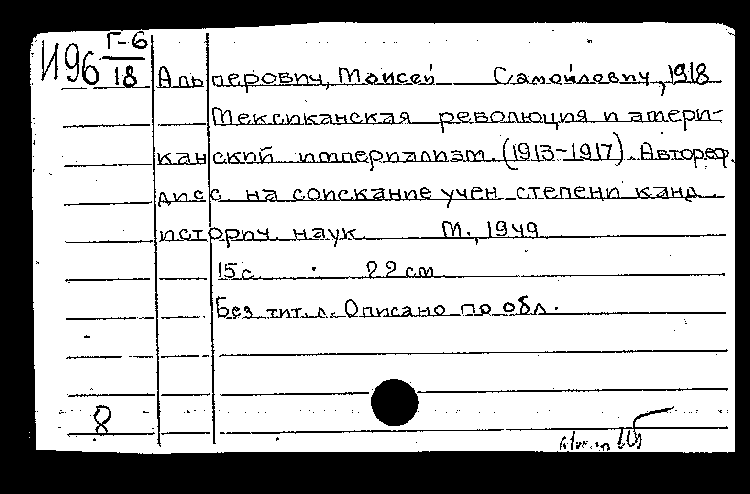 И96 Г-6
18
Альперович, Моисей Самойлович, 1918
Мексиканская революция и амери-
канский империализм. (1913-1917). Автореф.
дисс. на соискание учен степени канд.
историч. наук М., 1949
15 с. 22 см
Без тит. л. Описано по обл.
8